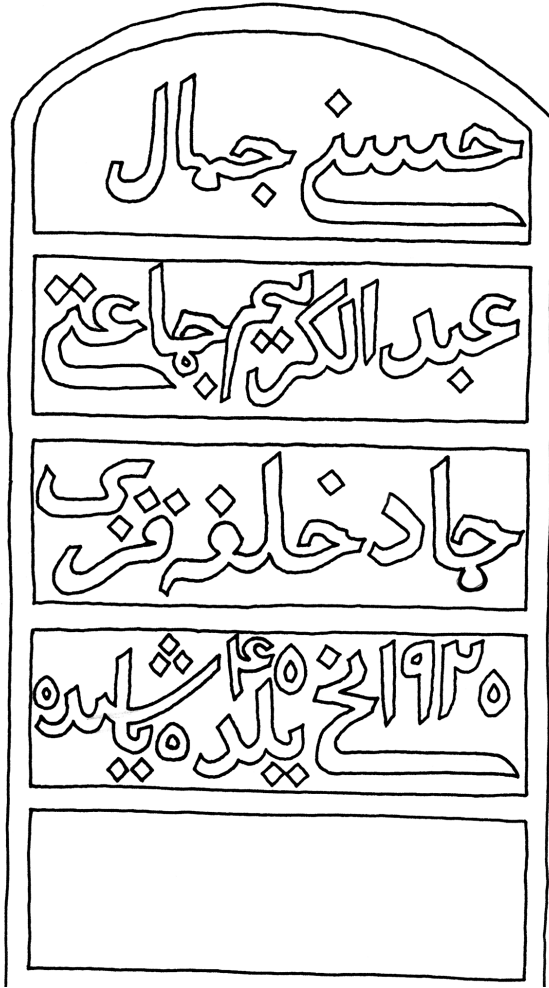 حسني جمال
عبد الكريم جماعتي
حماد خلفه قزى
١٩٢٠ نجي يلده ۴٥ ياشنده